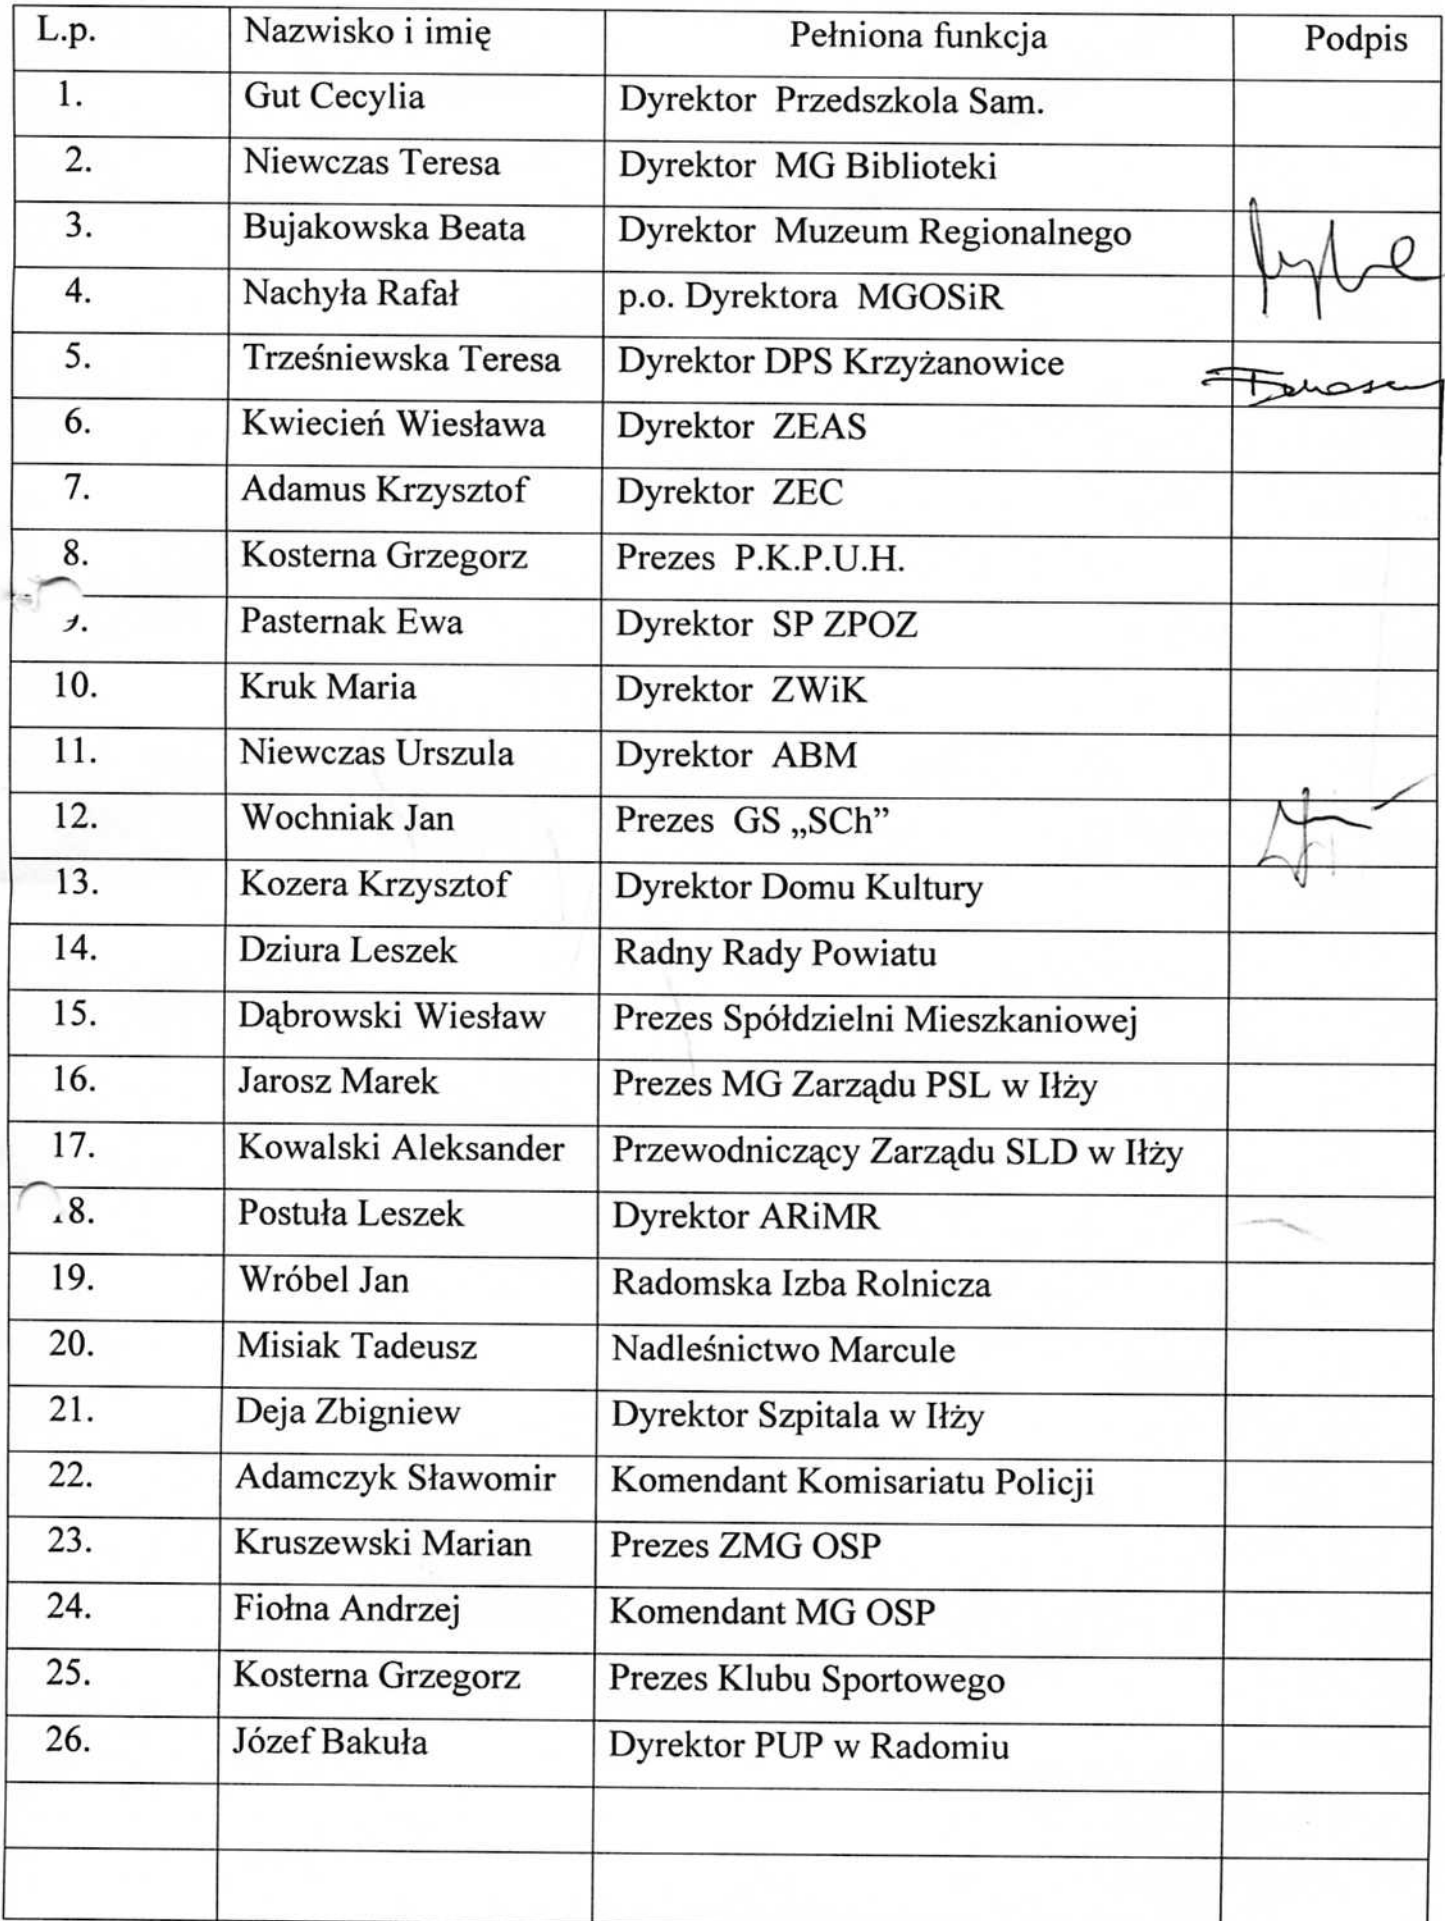 L.p. Nazwisko i imię Pełniona funkcja Podpis
1. Gut Cecylia Dyrektor Przedszkola Sam.
2. Niewczas Teresa Dyrektor MG Biblioteki
3. Bujakowska Beata Dyrektor Muzeum Regionalnego
4. Nachyła Rafał p.o. Dyrektora MGOSiR
5. Trześniewska Teresa Dyrektor DPS Krzyżanowice
6. Kwiecień Wiesława Dyrektor ZEAS
7. Adamus Krzysztof Dyrektor ZEC
8. Kosterna Grzegorz Prezes P.K.P.U.H.
9. Pasternak Ewa Dyrektor SP ZPOZ
10. Kruk Maria Dyrektor ZWiK
11. Niewczas Urszula Dyrektor ABM
12. Wochniak Jan Prezes GS „SCh”
13. Kozera Krzysztof Dyrektor Domu Kultury
14. Dziura Leszek Radny Rady Powiatu
15. Dąbrowski Wiesław Prezes Spółdzielni Mieszkaniowej
16. Jarosz Marek Prezes MG Zarządu PSL w Iłży
17. Kowalski Aleksander Przewodniczący Zarządu SLD w Iłży
18. Postuła Leszek Dyrektor ARiMR
19. Wróbel Jan Radomska Izba Rolnicza
20. Misiak Tadeusz Nadleśnictwo Marcule
21. Deja Zbigniew Dyrektor Szpitala w Iłży
22. Adamczyk Sławomir Komendant Komisariatu Policji
23. Kruszewski Marian Prezes ZMG OSP
24. Fiołna Andrzej Komendant MG OSP
25. Kosterna Grzegorz Prezes Klubu Sportowego
26. Józef Bakuła Dyrektor PUP w Radomiu